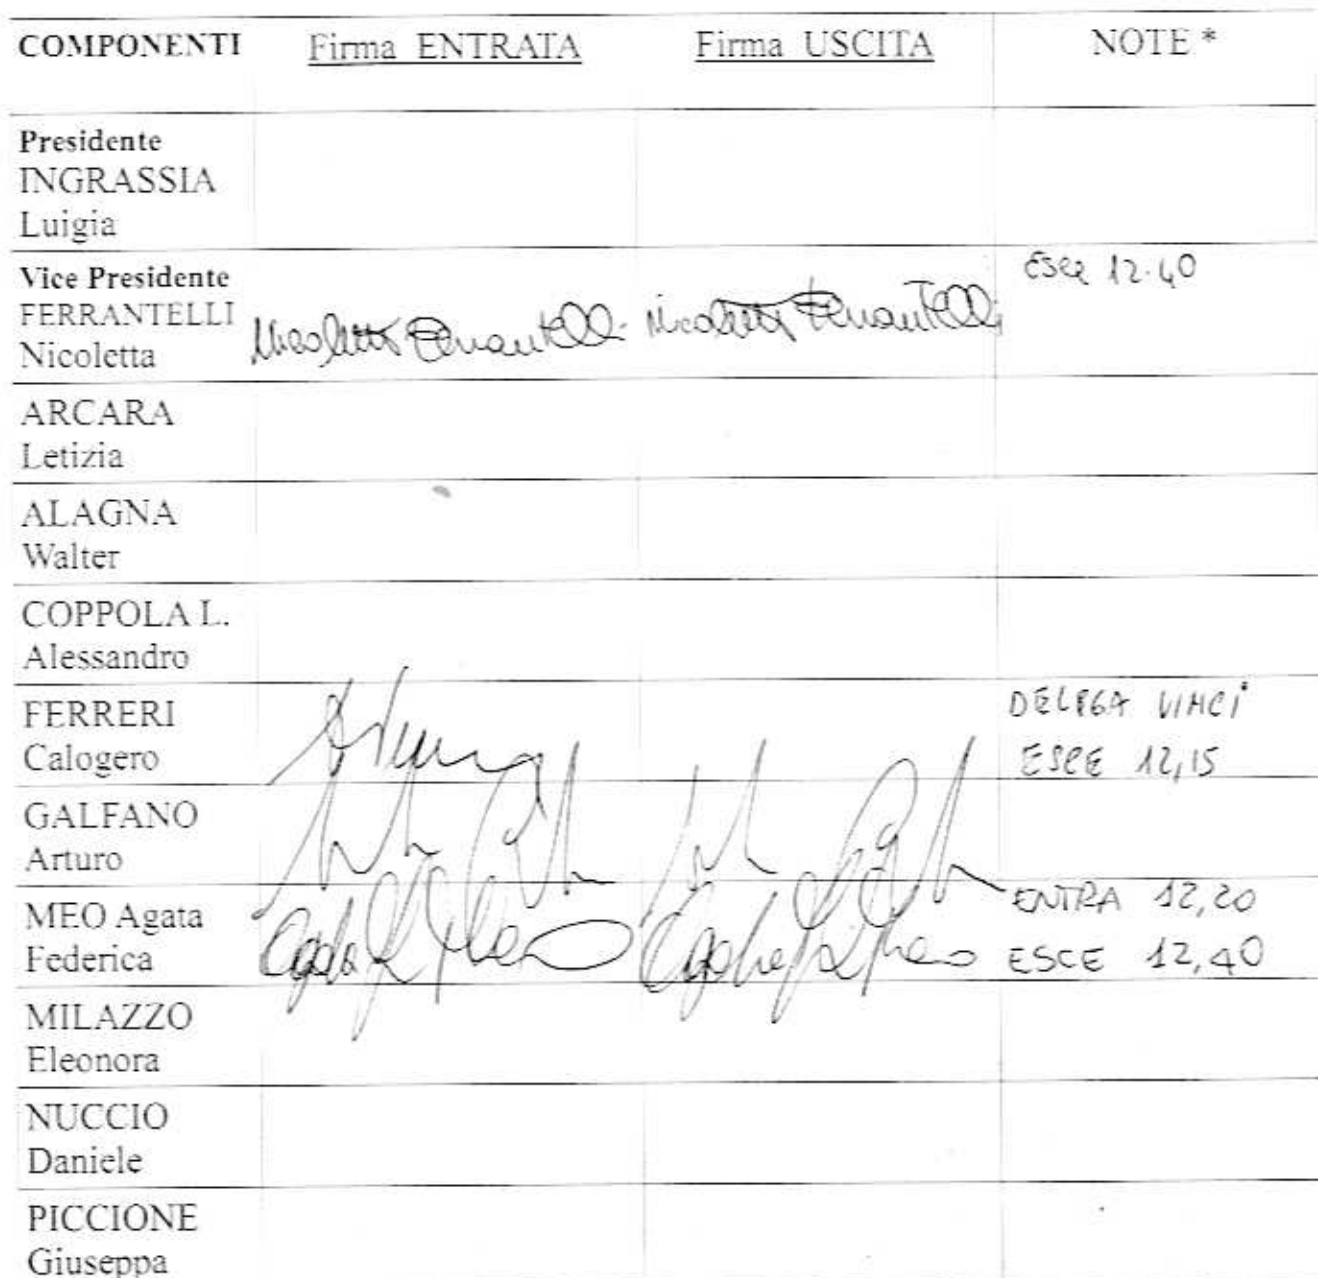 COMPONENTI Firma ENTRATA Firma USCITA NOTE *
Presidente
INGRASSIA
Luigia
Vice Presidente ESCE 12.40
FERRANTELLI
Nicoletta Nicoletta Ferrantelli Nicoletta Ferrantelli
ARCARA
Letizia
ALAGNA
Walter
COPPOLA L.
Alessandro
FERRERI DELEGA VINCI
Calogero ESCE 12,15
GALFANO
Arturo
MEO Agata ENTRA 12,20
Federica ESCE 12,40
MILAZZO
Eleonora
NUCCIO
Daniele
PICCIONE
Giuseppa